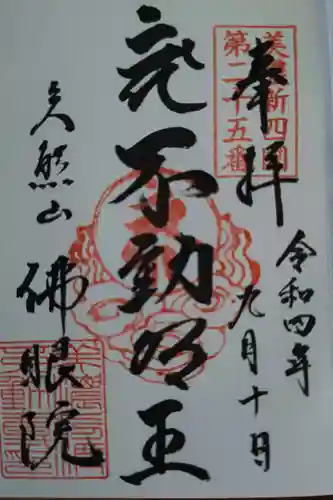 美濃新四国
第二十五番
奉拝
令和四年
九月十日
不動明王
熊山
佛眼院